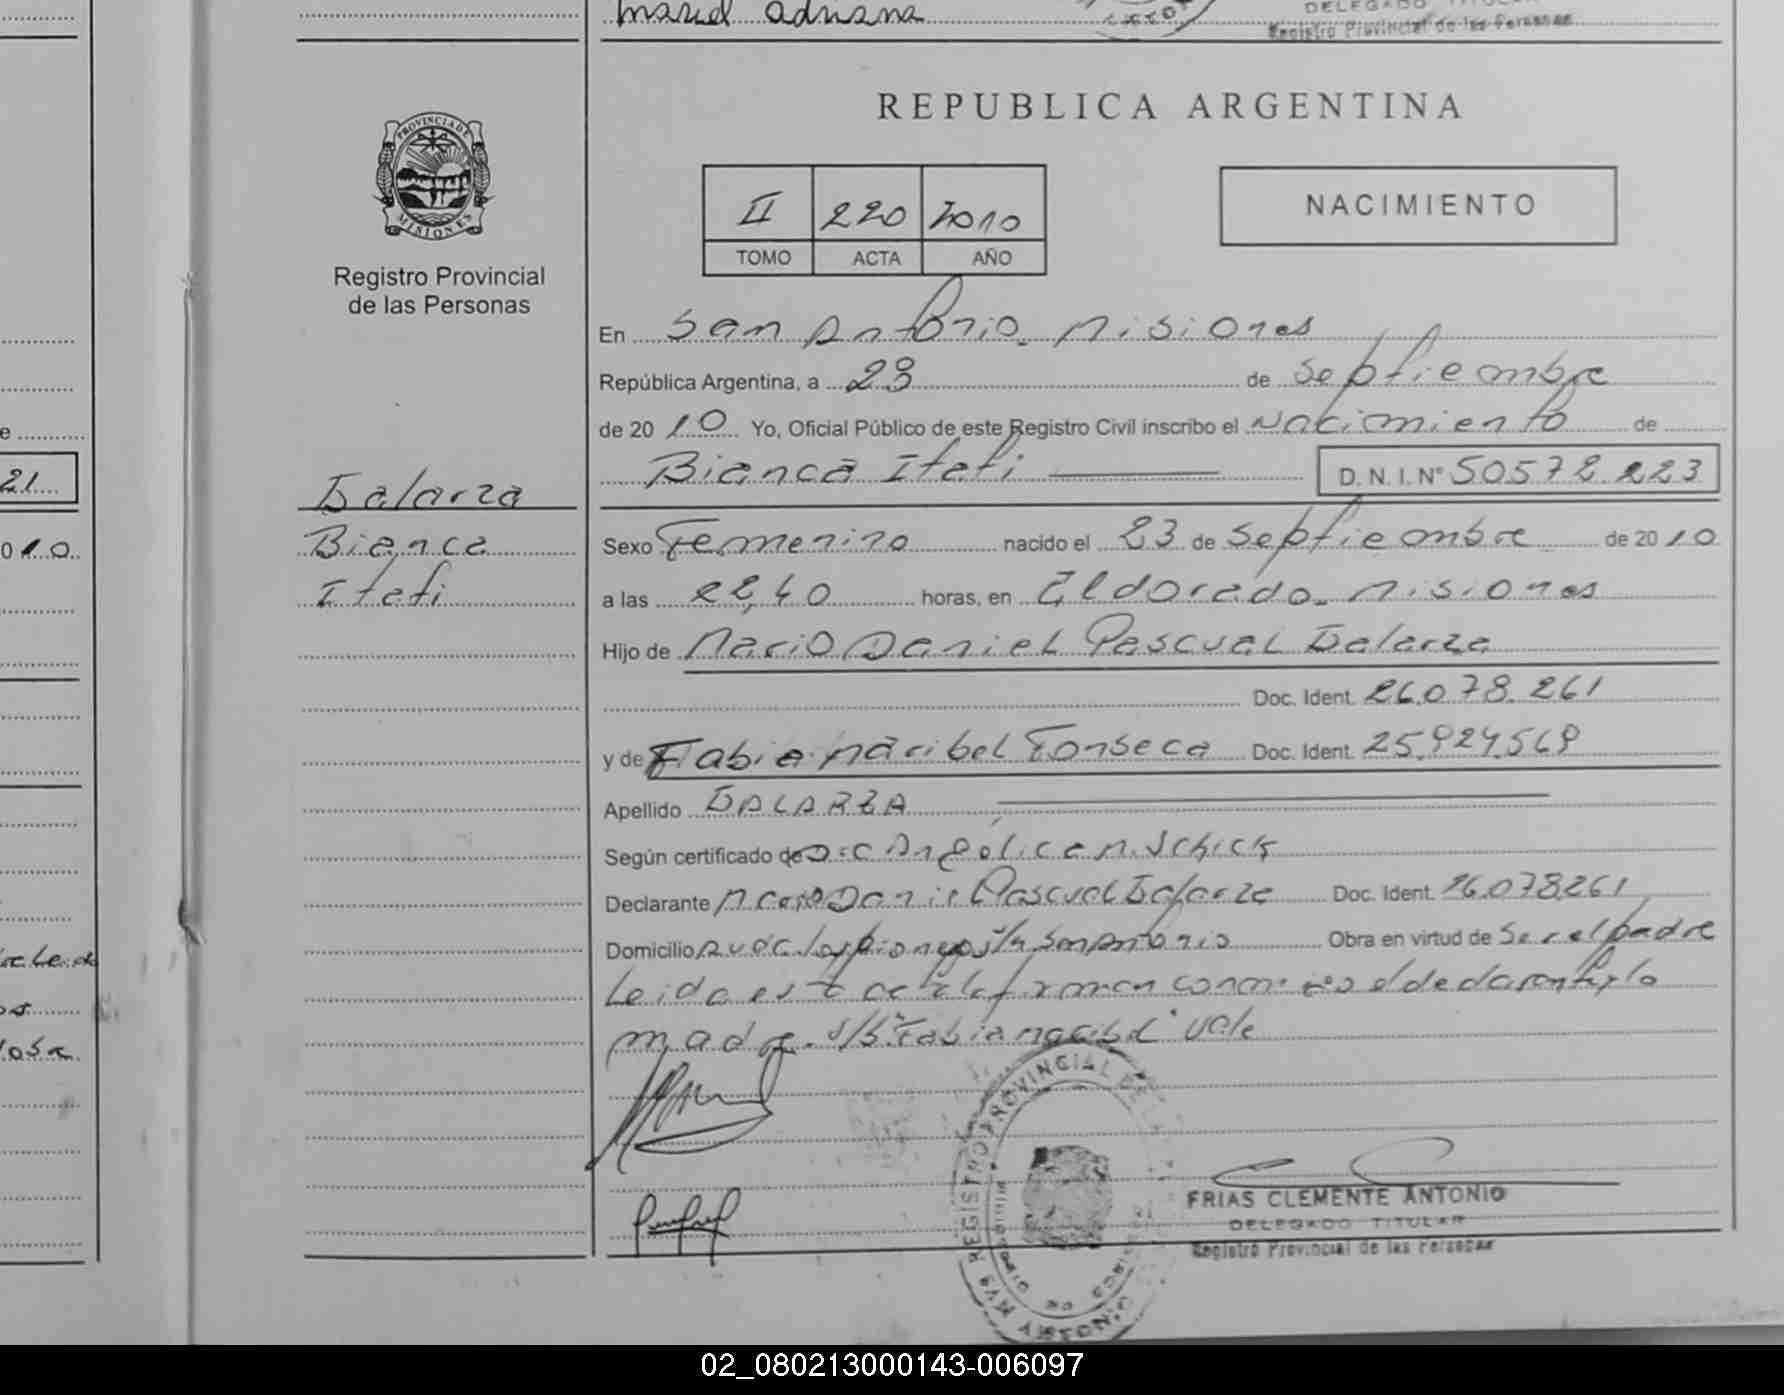 mariel adriana
DELEGADO TITULAR
Registro Provincial de las Personas
REPUBLICA ARGENTINA
PROVINCIA DE MISIONES
II 220 2010
TOMO ACTA AÑO
NACIMIENTO
Registro Provincial
de las Personas
En San Antonio. Misiones
República Argentina, a 23 de Septiembre
de 20 10 Yo, Oficial Público de este Registro Civil inscribo el Nacimiento de
21
Bianca Itatí D. N. I. Nº 50572.223
Galarza
Bianca
Itatí
010
Sexo Femenino nacido el 23 de Septiembre de 20 10
a las 22,40 horas, en Eldorado. Misiones
Hijo de Mario Daniel Pascual Galarza
Doc. Ident. 26.078.261
y de Fabia Maribel Fonseca Doc. Ident. 25.924.569
Apellido GALARZA
Según certificado de Angélica M. Schick
Declarante Mario Daniel Pascual Galarza Doc. Ident. 26.078.261
Domicilio s/n San Antonio Obra en virtud de Ser el padre
Leida esta acta la firman conmigo el declarante y la
madre. s/b "Fabia Maribel" vale
REGISTRO PROVINCIAL DE
SAN ANTONIO
FRIAS CLEMENTE ANTONIO
DELEGADO TITULAR
Registro Provincial de las Personas
02_080213000143-006097